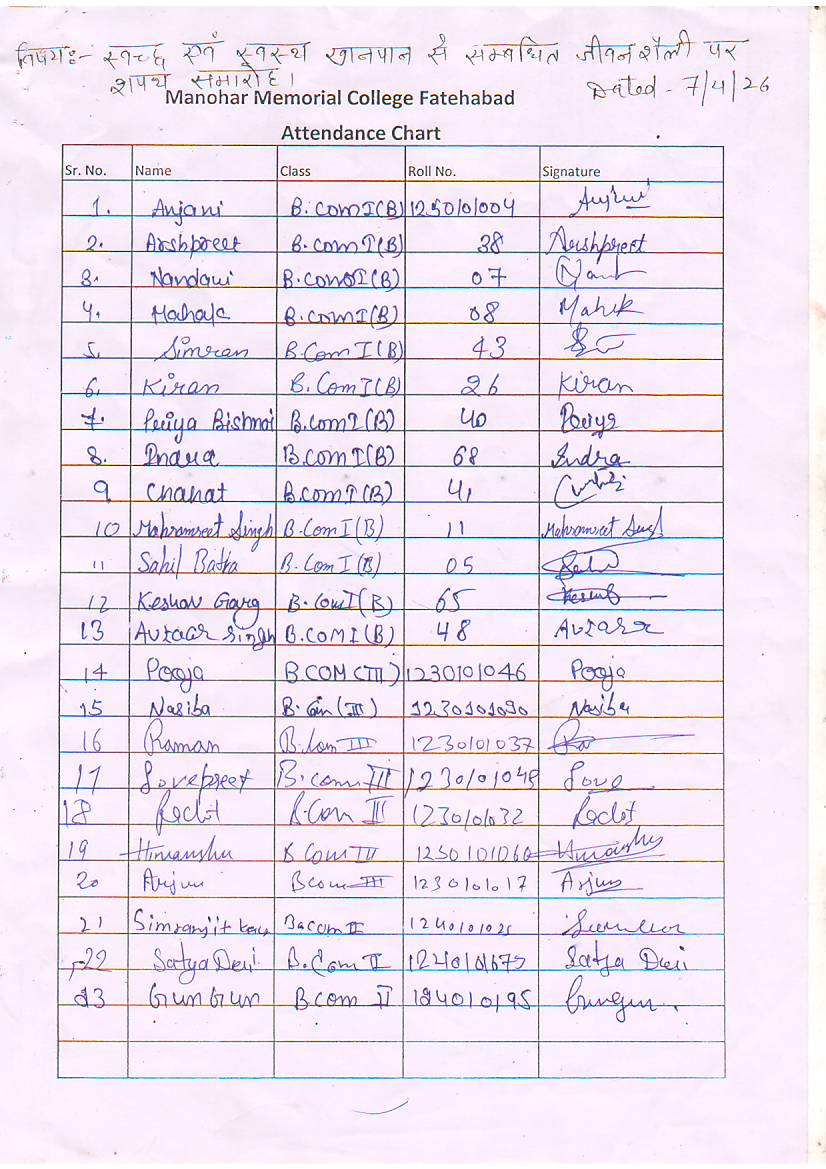 विषय:- स्वच्छ एवं स्वस्थ खानपान से सम्बंधित जीवन शैली पर
शपथ समारोह।
Dated - 7/4/26
Manohar Memorial College Fatehabad
Attendance Chart
Sr. No. Name Class Roll No. Signature
1. Anjani B.ComI(B) 1250101004
2. Arshpreet B.comI(B) 38 Arshpreet
3. Nandani B.ComI(B) 07
4. Mahak B.comI(B) 08 Mahek
5. Simran B.Com I(B) 43
6. Kiran B.ComI(B) 26 Kiran
7. Priya Bishnoi B.comI(B) 40 Priya
8. Indra B.comI(B) 68 Indra
9. Chahat B.comI(B) 41
10 Mahramreet Singh B.ComI(B) 11 Mahramreet Singh
11 Sahil Batra B.ComI(B) 05
12 Keshav Garg B.ComI(B) 65 Keshav
13 Avtaar Singh B.COMI(B) 48 Avtaar
14 Pooja B.COM(III) 1230101046 Pooja
15 Nasiba B.Com(III) 1230101090 Nasiba
16 Raman B.Com III 1230101037
17 Lovepreet B.com III 1230101048 Love
18 B.Com III 1230101032
19 Himanshu B Com III 1230101060 Himanshu
20 Arjun Bcom III 1230101017 Arjun
21 Simranjit kaur Bacom II 1240101025
22 Satya Devi B.Com II Satya Devi
23 GunGun Bcom II Gungun.